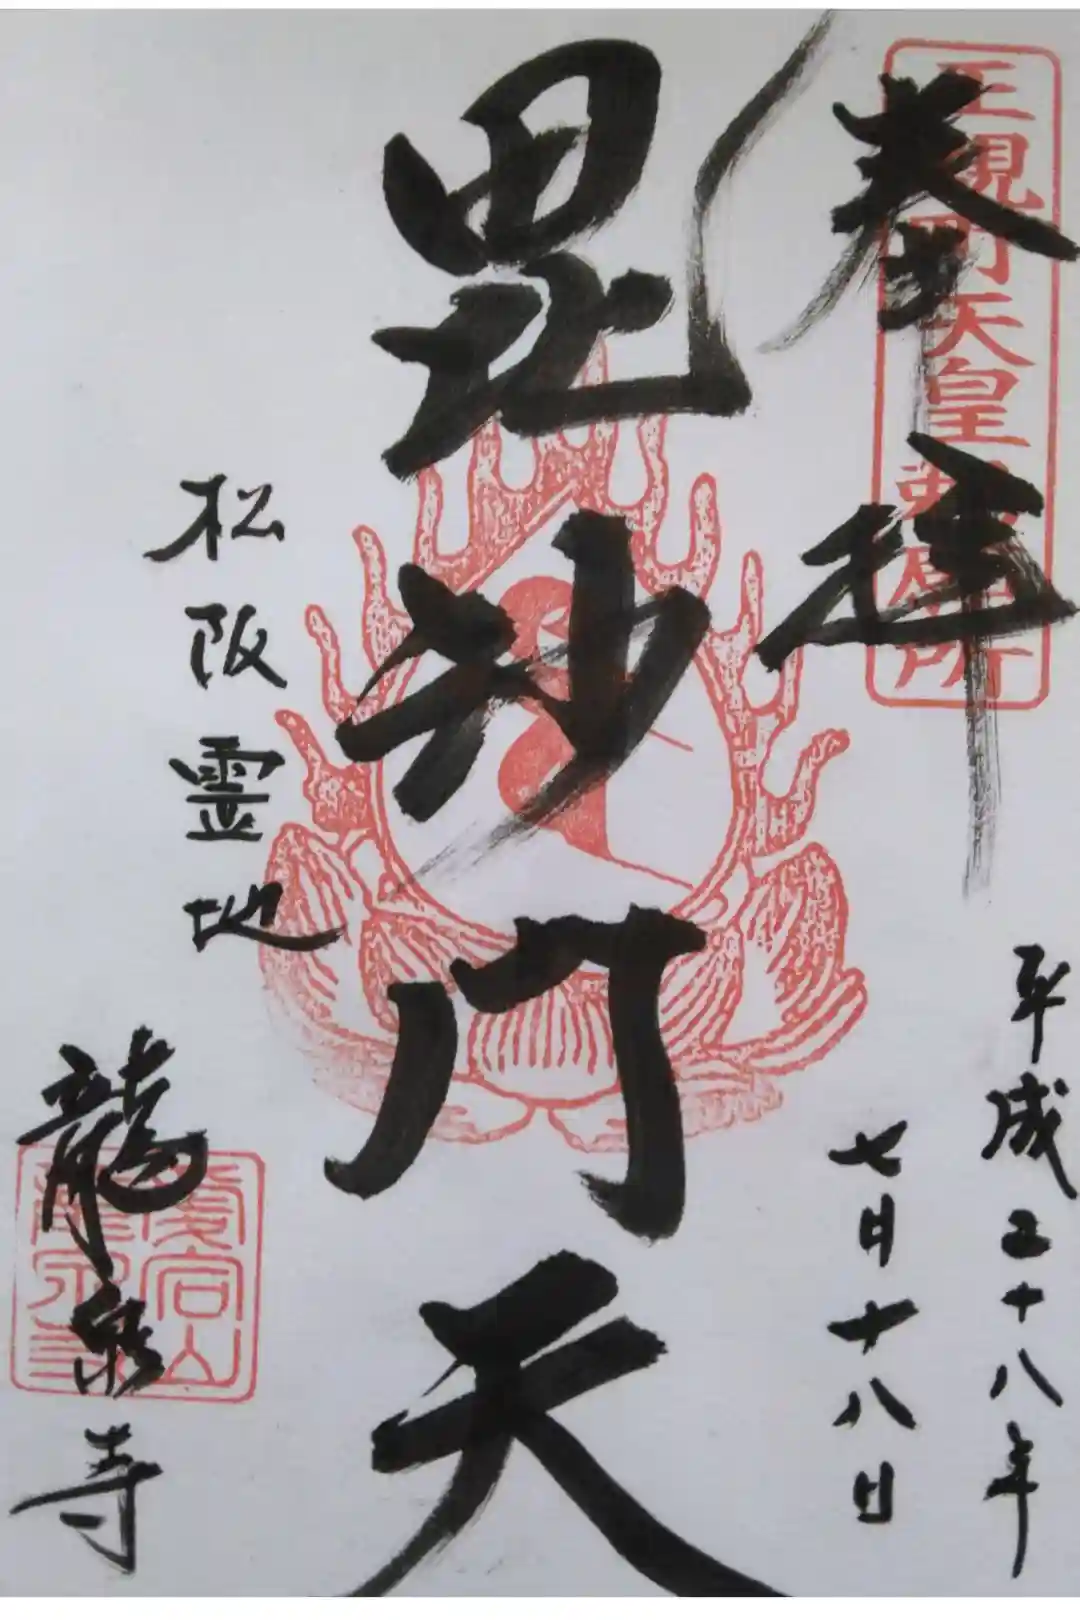 奉拝
正親町天皇勅願所
平成二十八年
七月十八日
毘沙門天
松阪霊地
龍泉寺
愛宕山